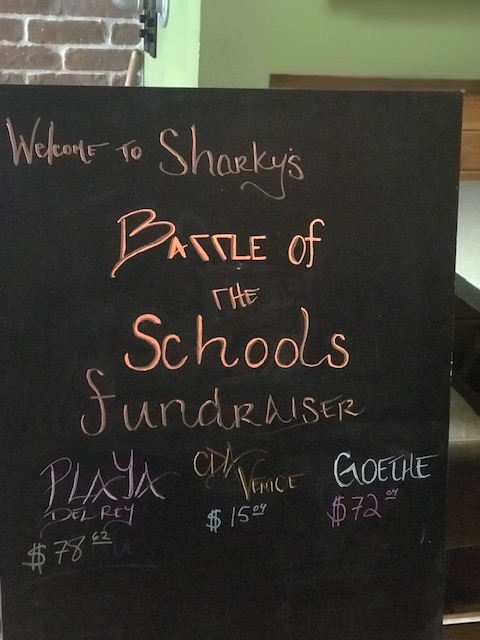 Welcome to Sharky's
Battle of
the
Schools
fundraiser
PLAYA
DEL REY
$78.62
CDA
Venice
$15.04
GOETHE
$72.04